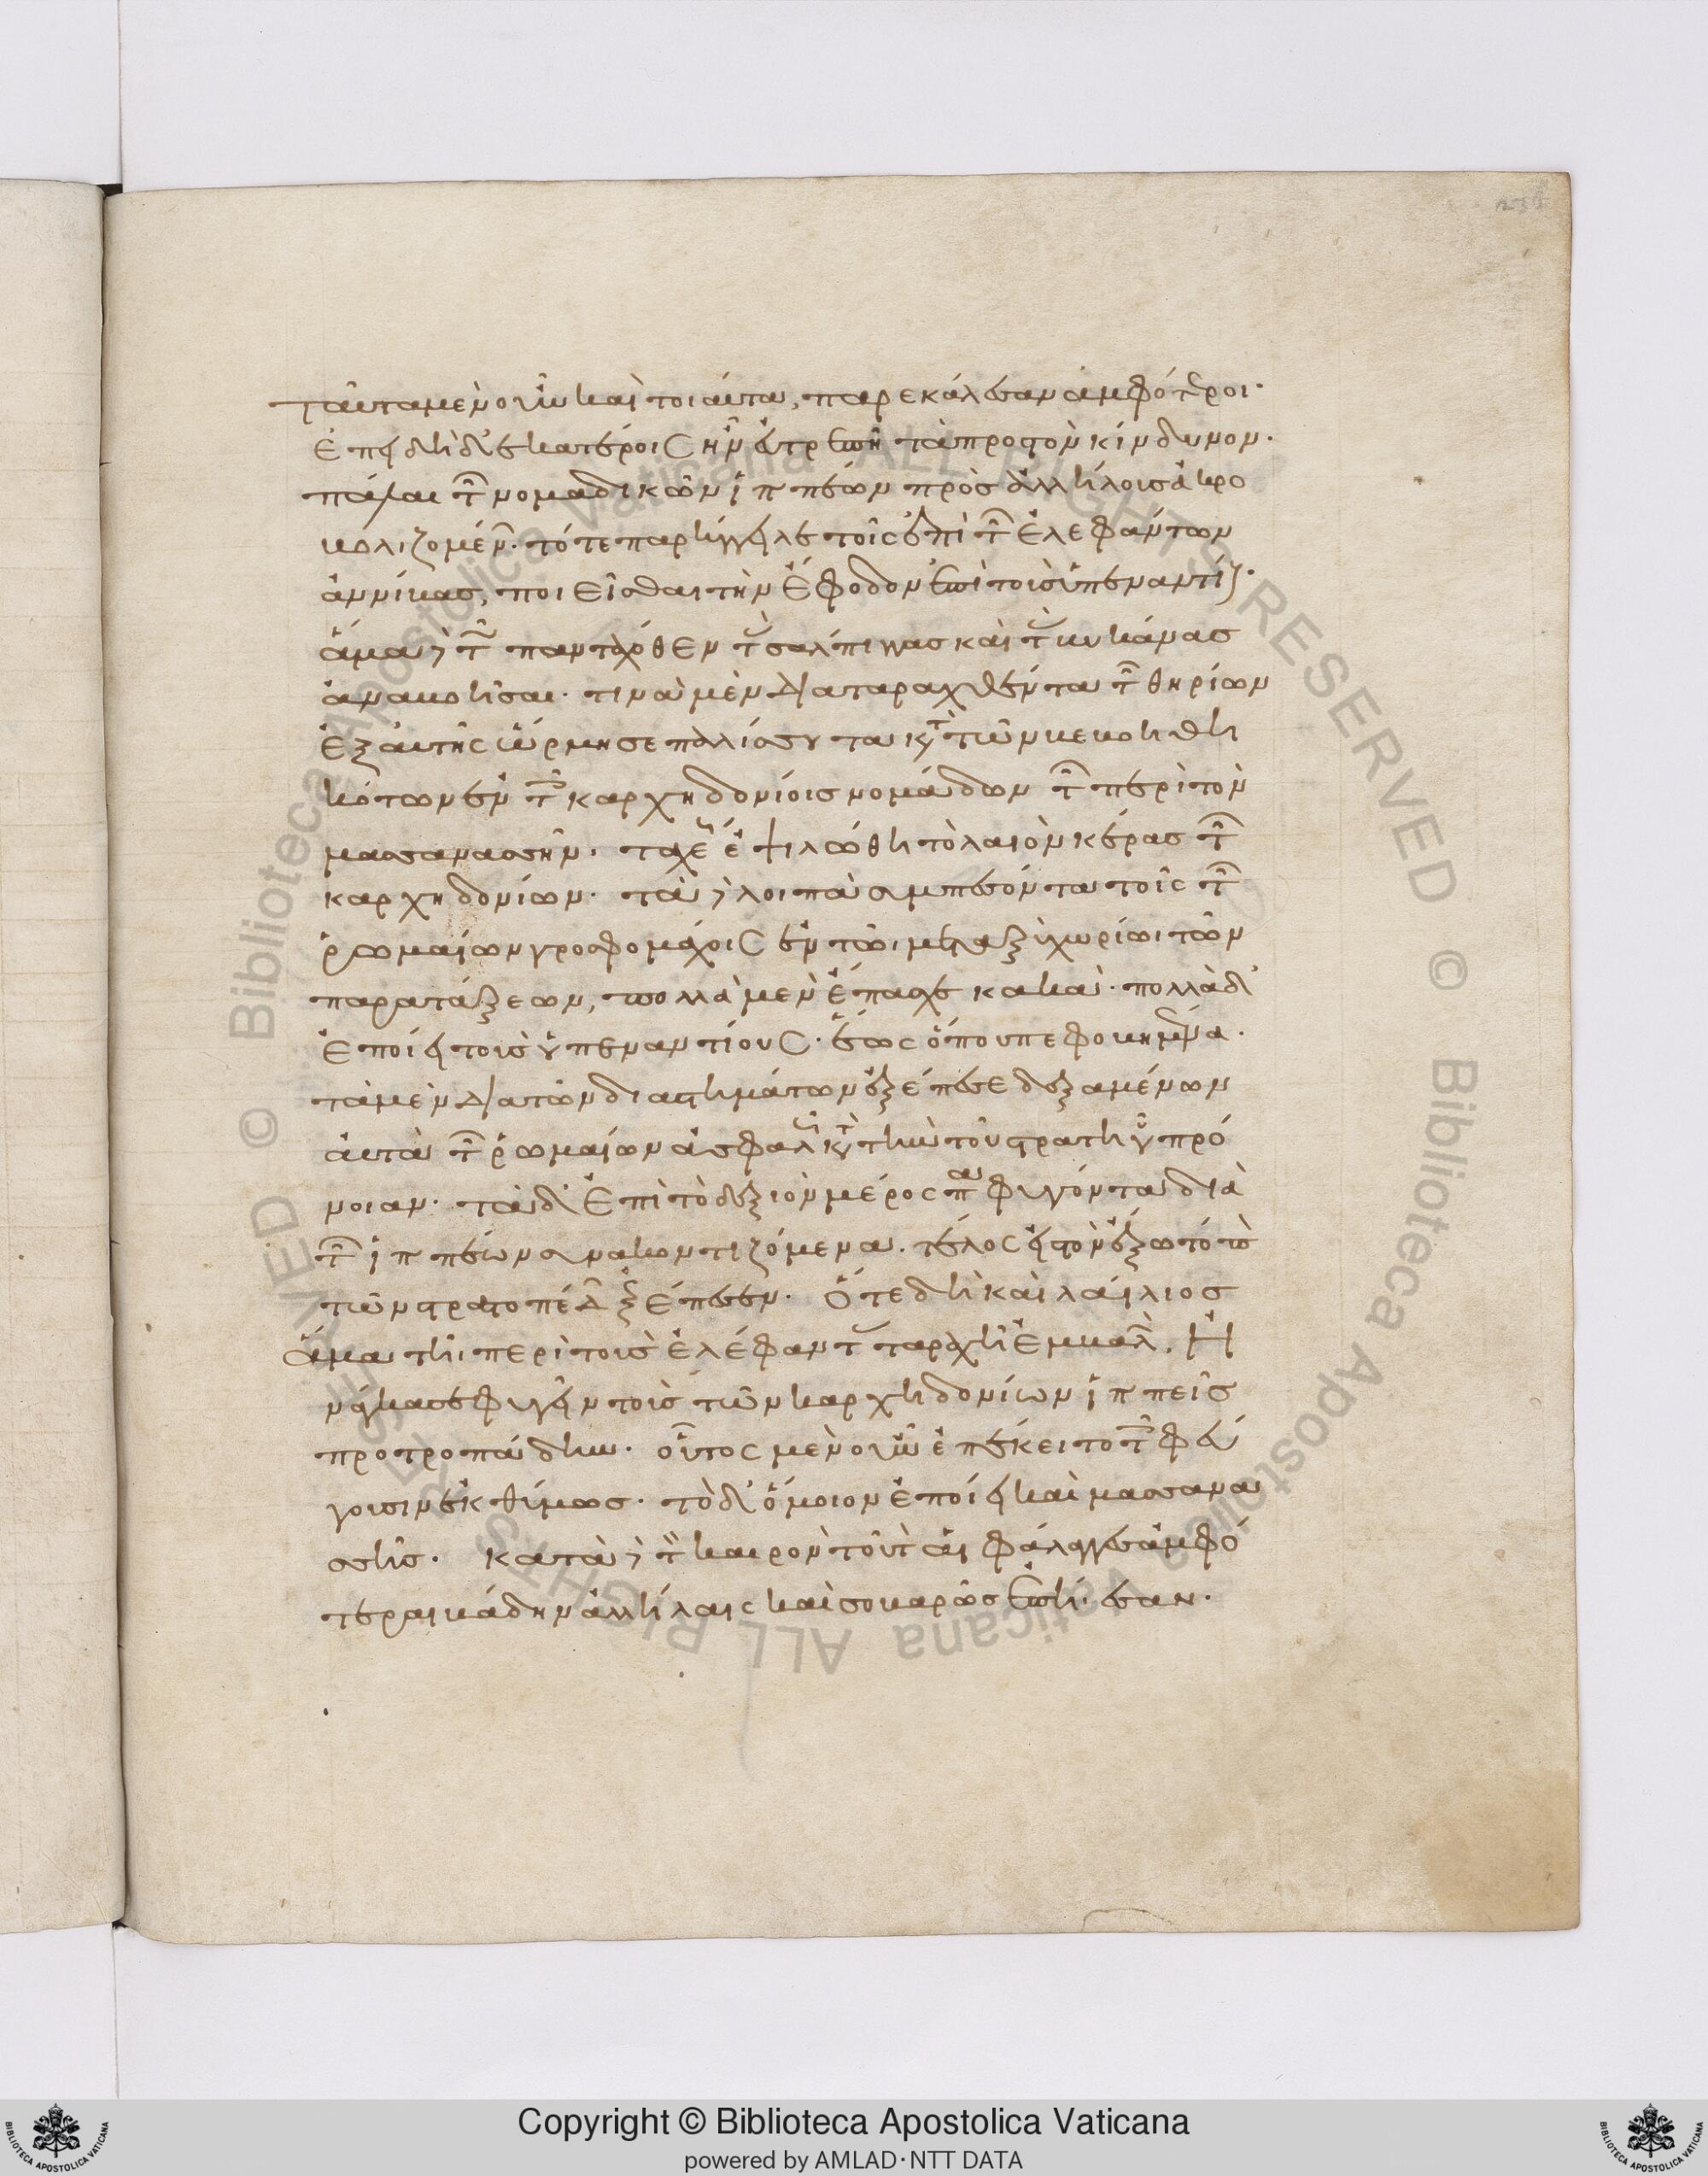 ταῦτα μὲν οὖν καὶ τοιαῦτα, παρεκάλεσαν ἀμφότεροι·
Ἐπειδὴ δ' ἑκατέροις ἦν εὐτρεπῆ τὰ πρὸς τὸν κίνδυνον·
πάλαι τῶν νομαδικῶν ἱππέων πρὸς ἀλλήλους ἀκρο
βολιζομένων· τότε παρήγγειλε τοῖς ἐπὶ τῶν ἐλεφάντων
ἀννίβας, ποιεῖσθαι τὴν ἔφοδον ἐπὶ τοὺς ὑπεναντίους·
ἅμα δὲ τῶ πανταχόθεν τὰς σάλπιγγας καὶ τὰς βυκάνας
ἀναβοῆσαι· τινὰ μὲν διαταραχθέντα τῶν θηρίων
ἐξ αὐτῆς ὥρμησε παλίσσυτα κατὰ τῶν βεβοηθη
κότων τοῖς καρχηδονίοις νομάδων τῶν περὶ τὸν
μασσανάσσην· ταχέως ἐψιλώθη τὸ λαιὸν κέρας τῶν
καρχηδονίων· τὰ δὲ λοιπὰ συμπεσόντα τοῖς τῶν
ῥωμαίων γροσφομάχοις ἐν τῶι μεταξὺ χωρίωι τῶν
παρατάξεων, πολλὰ μὲν ἔπασχε κακὰ· πολλὰ δ'
ἐποίει τοὺς ὑπεναντίους· ἕως ὅτου πεφοβημένα·
τὰ μὲν διὰ τῶν διαστημάτων ἐξέπεσε δεξαμένων
αὐτὰ τῶν ῥωμαίων ἀσφαλῶς κατὰ τὴν τοῦ στρατηγοῦ πρό
νοιαν· τὰ δ' ἐπὶ τὸ δεξιὸν μέρος παραφυγόντα διὰ
τῶν ἱππέων συνακοντιζόμενα· τέλος εἰς τὸν ἔξω τόπον
τῶν στρατοπέδων ἐξέπεσεν· Ὅτε δὴ καὶ λαίλιος
ἅμα τῆι περὶ τοὺς ἐλέφαντας ταραχῆι ἐμβαλὼν, ἠ
νάγκασε φυγεῖν τοὺς τῶν καρχηδονίων ἱππεῖς
προτροπάδην· οὗτος μὲν οὖν ἐπέκειτο τοῖς φεύ
γουσιν ἐκθύμως· τὸ δ' ὅμοιον ἐποίει καὶ μασσανά
σσης· κατὰ δὲ τὸν καιρὸν τοῦτον αἱ φάλαγγες ἀμφό
τεραι βάδην ἀλλήλαις καὶ σοβαρῶς ἐπήεσαν·
Copyright © Biblioteca Apostolica Vaticana
powered by AMLAD·NTT DATA